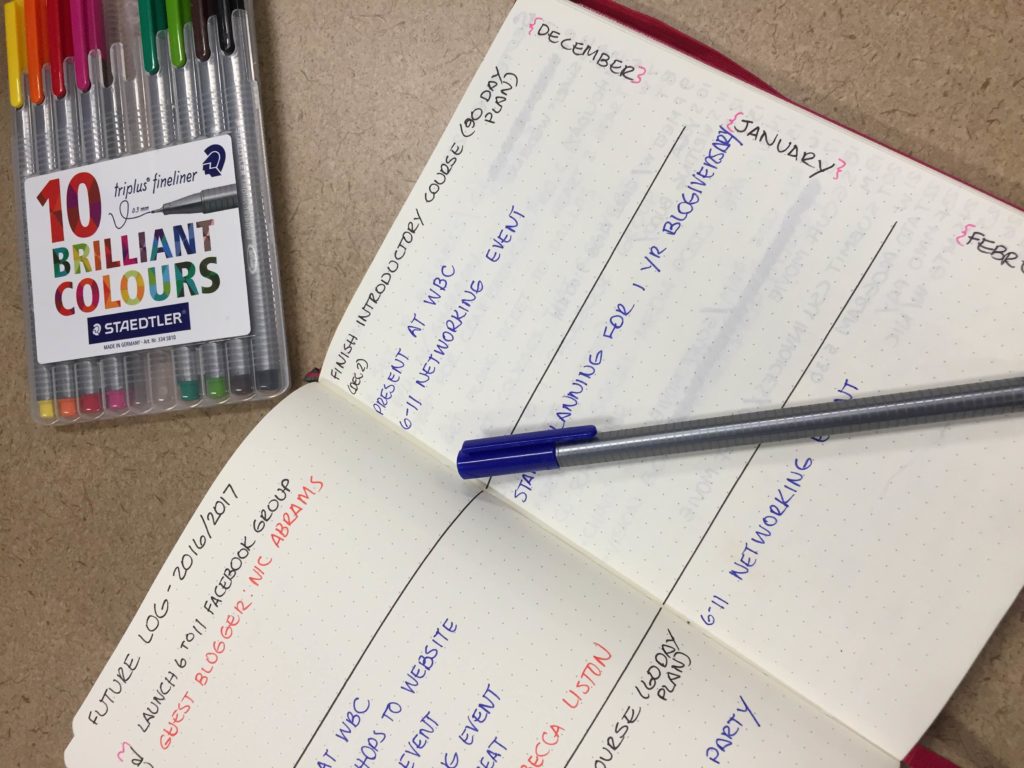 10
triplus® fineliner
0.3 mm
BRILLIANT
COLOURS
STAEDTLER
MADE IN GERMANY - Art. Nr. 334 SB10
{DECEMBER}
FINISH INTRODUCTORY COURSE (90 DAY
PLAN)
(DEC. 2)
PRESENT AT WBC
6-11 NETWORKING EVENT
{JANUARY}
PLANNING FOR 1 YR BLOGIVERSARY
{FEBR
6-11 NETWORKING
FUTURE LOG - 2016/2017
LAUNCH 6 TO 11 FACEBOOK GROUP
GUEST BLOGGER: NIC ABRAMS
AT WBC
HOPS TO WEBSITE
EVENT
NG EVENT
EAT
BECCA LISTON
OURSE (60 DAY
PLAN)
PARTY